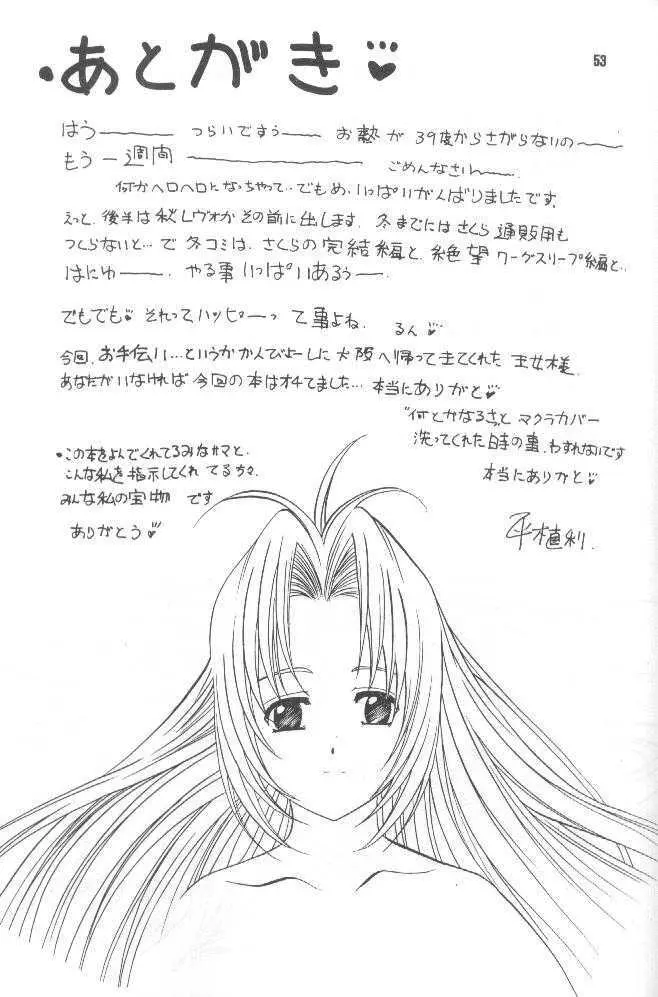 ・あとがき
53
はう―――― つらいですぅ――― お熱が 39度からさがらないの―――
もう一週間 ―――――――― ごめんなさい――.
何かヘロヘロになっちゃって‥でもめいっぱいがんばりましたです.
えっと、後半は秋レヴォかその前に出します. 冬までにはさくら通販用も
つくらないと…で 冬コミは、さくらの完結編と、絶望 ワーケスリープ編と‥
はにゅ――. やる事いっぱいあるぅ――.
でもでも それってハッピーって事よね. るん
今回、お手伝い…というかかんびょーしに大阪へ帰って来てくれた 王女様.
あなたがいなければ今回の本はオチてました…本当にありがと
"何とかなるさ"と マクラカバー
洗ってくれた時の事、わすれないです
本当にありがと
・この本をよんでくれてるみなサマと、
こんな私を指示してくれてる方々
みんな私の宝物です
ありがとう
平植利.